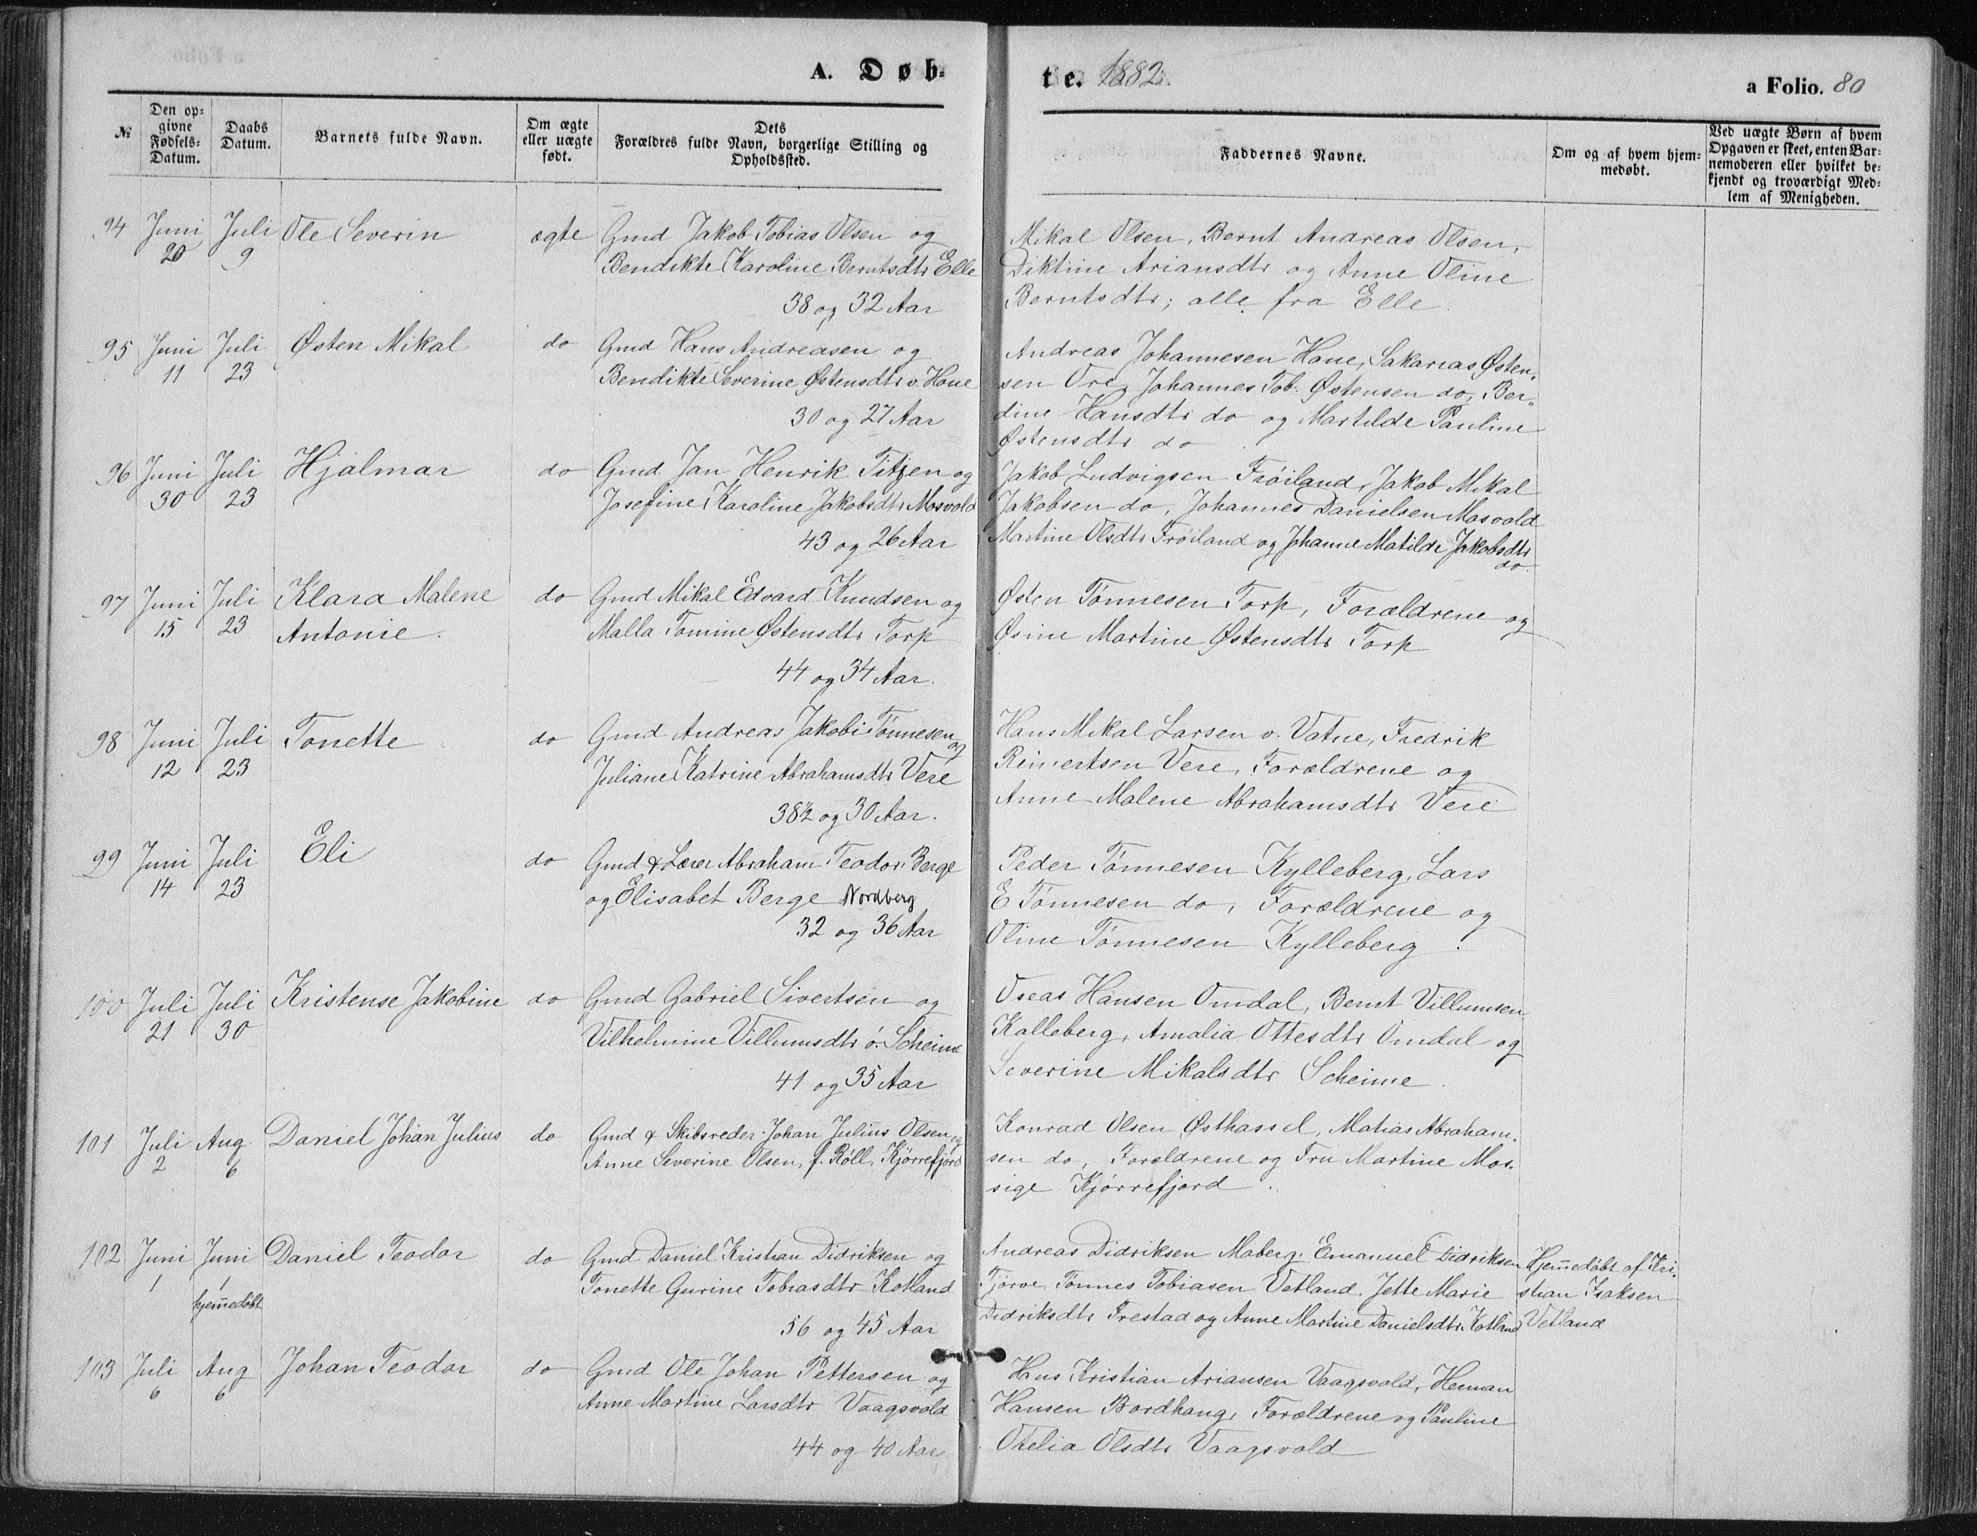 A. Døb-
te. 1882.
a Folio. 80
№
Den op-
givne
Fødsels-
Datum.
Daabs
Datum.
Barnets fulde Navn.
Om ægte
eller uægte
født.
Dets
Forældres fulde Navn, borgerlige Stilling og
Opholdssted.
Faddernes Navne.
Om og af hvem hjem-
medøbt.
Ved uægte Børn af hvem
Opgaven er skeet, enten Bar-
nemoderen eller hvilket be-
kjendt og troværdigt Med-
lem af Menigheden.
94 Juni 20 Juli 9 Ole Severin ægte Gmd Jakob Tobias Olsen og
Bendikte Karoline Berntsdtr Elle
38 og 32 Aar
Mikal Olsen, Bernt Andreas Olsen,
Diktine Ariansdtr og Anne Oline
Berntsdtr; alle fra Elle.
95 Juni 11 Juli 23 Østen Mikal do Gmd Hans Andreasen og
Bendikte Severine Østensdtr v. Hone
30 og 27 Aar
Andreas Johannesen Hane, Sakarias Østen-
sen Ore, Johannes Tob. Østensen do, Ber-
dine Hansdtr do og Martilde Pauline
Østensdtr do
96 Juni 30 Juli 23 Hjalmar do Gmd Jan Henrik Titjen og
Josefine Karoline Jakobsdtr Mosvold
43 og 26 Aar
Jakob Ludvigsen Frøiland, Jakob Mikal
Jakobsen do, Johannes Danielsen Mosvold
Martine Olsdtr Frøiland og Johanne Matilde Jakobsdtr
do.
97 Juni 15 Juli 23 Klara Malene do Gmd Mikal Edvard Knudsen og
Antonie. Malla Tomine Østensdtr Torp
44 og 34 Aar.
Østen Tønnesen Torp, Forældrene og
Osine Martine Østensdtr Torp
98 Juni 12 Juli 23 Tonette do Gmd Andreas Jakobi Tønnesen og
Juliane Katrine Abrahamsdtr Vere
38½ og 30 Aar.
Hans Mikal Larsen v. Vatne, Fredrik
Reinertsen Vere, Forældrene og
Anne Malene Abrahamsdtr Vere
99 Juni 14 Juli 23 Eli do Gmd & Lærer Abraham Teodor Berge
og Elisabet Berge Nordberg
32 og 36 Aar
Peder Tønnesen Kylleberg, Lars
E Tønnesen do, Forældrene og
Oline Tønnesen Kylleberg.
100 Juli 21 Juli 30 Kristense Jakobine do Gmd Gabriel Sivertsen og
Vilhelmine Villumsdtr ó. Scheime
41 og 35 Aar
Oseas Hansen Omdal, Bernt Villumsen
Kalleberg, Amalia Ottesdtr Omdal og
Severine Mikalsdtr Scheime.
101 Juli 2 Aug. 6 Daniel Johan Julius do Gmd & Skibsreder Johan Julius Olsen og
Anne Severine Olsen, f. Röll, Kjørrefjord
Konrad Olsen Østhassel, Matias Abraham-
sen do, Forældrene og Fru Martine Mos-
sige Kjørrefjord.
102 Juni 1 Juni 1 hjemmedøbt Daniel Teodor do Gmd Daniel Kristian Didriksen og
Tonette Gurine Tobiasdtr Kotland
56 og 45 Aar
Andreas Didriksen Maberg, Emanuel Didriksen
Tjørve, Tønnes Tobiasen Vetland, Jette Marie
Didriksdtr Frestad og Anne Martine Danielsdtr Kotland
Hjemmedøbt af Kri-
stian Isaksen
Vetland
103 Juli 6 Aug 6 Johan Teodor do Gmd Ole Johan Pettersen og
Anne Martine Larsdtr Vaagsvold
44 og 40 Aar
Hans Kristian Ariansen Vaagsvold, Herman
Hansen Bordhaug, Forældrene og Pauline
Otelia Olsdtr Vaagsvold